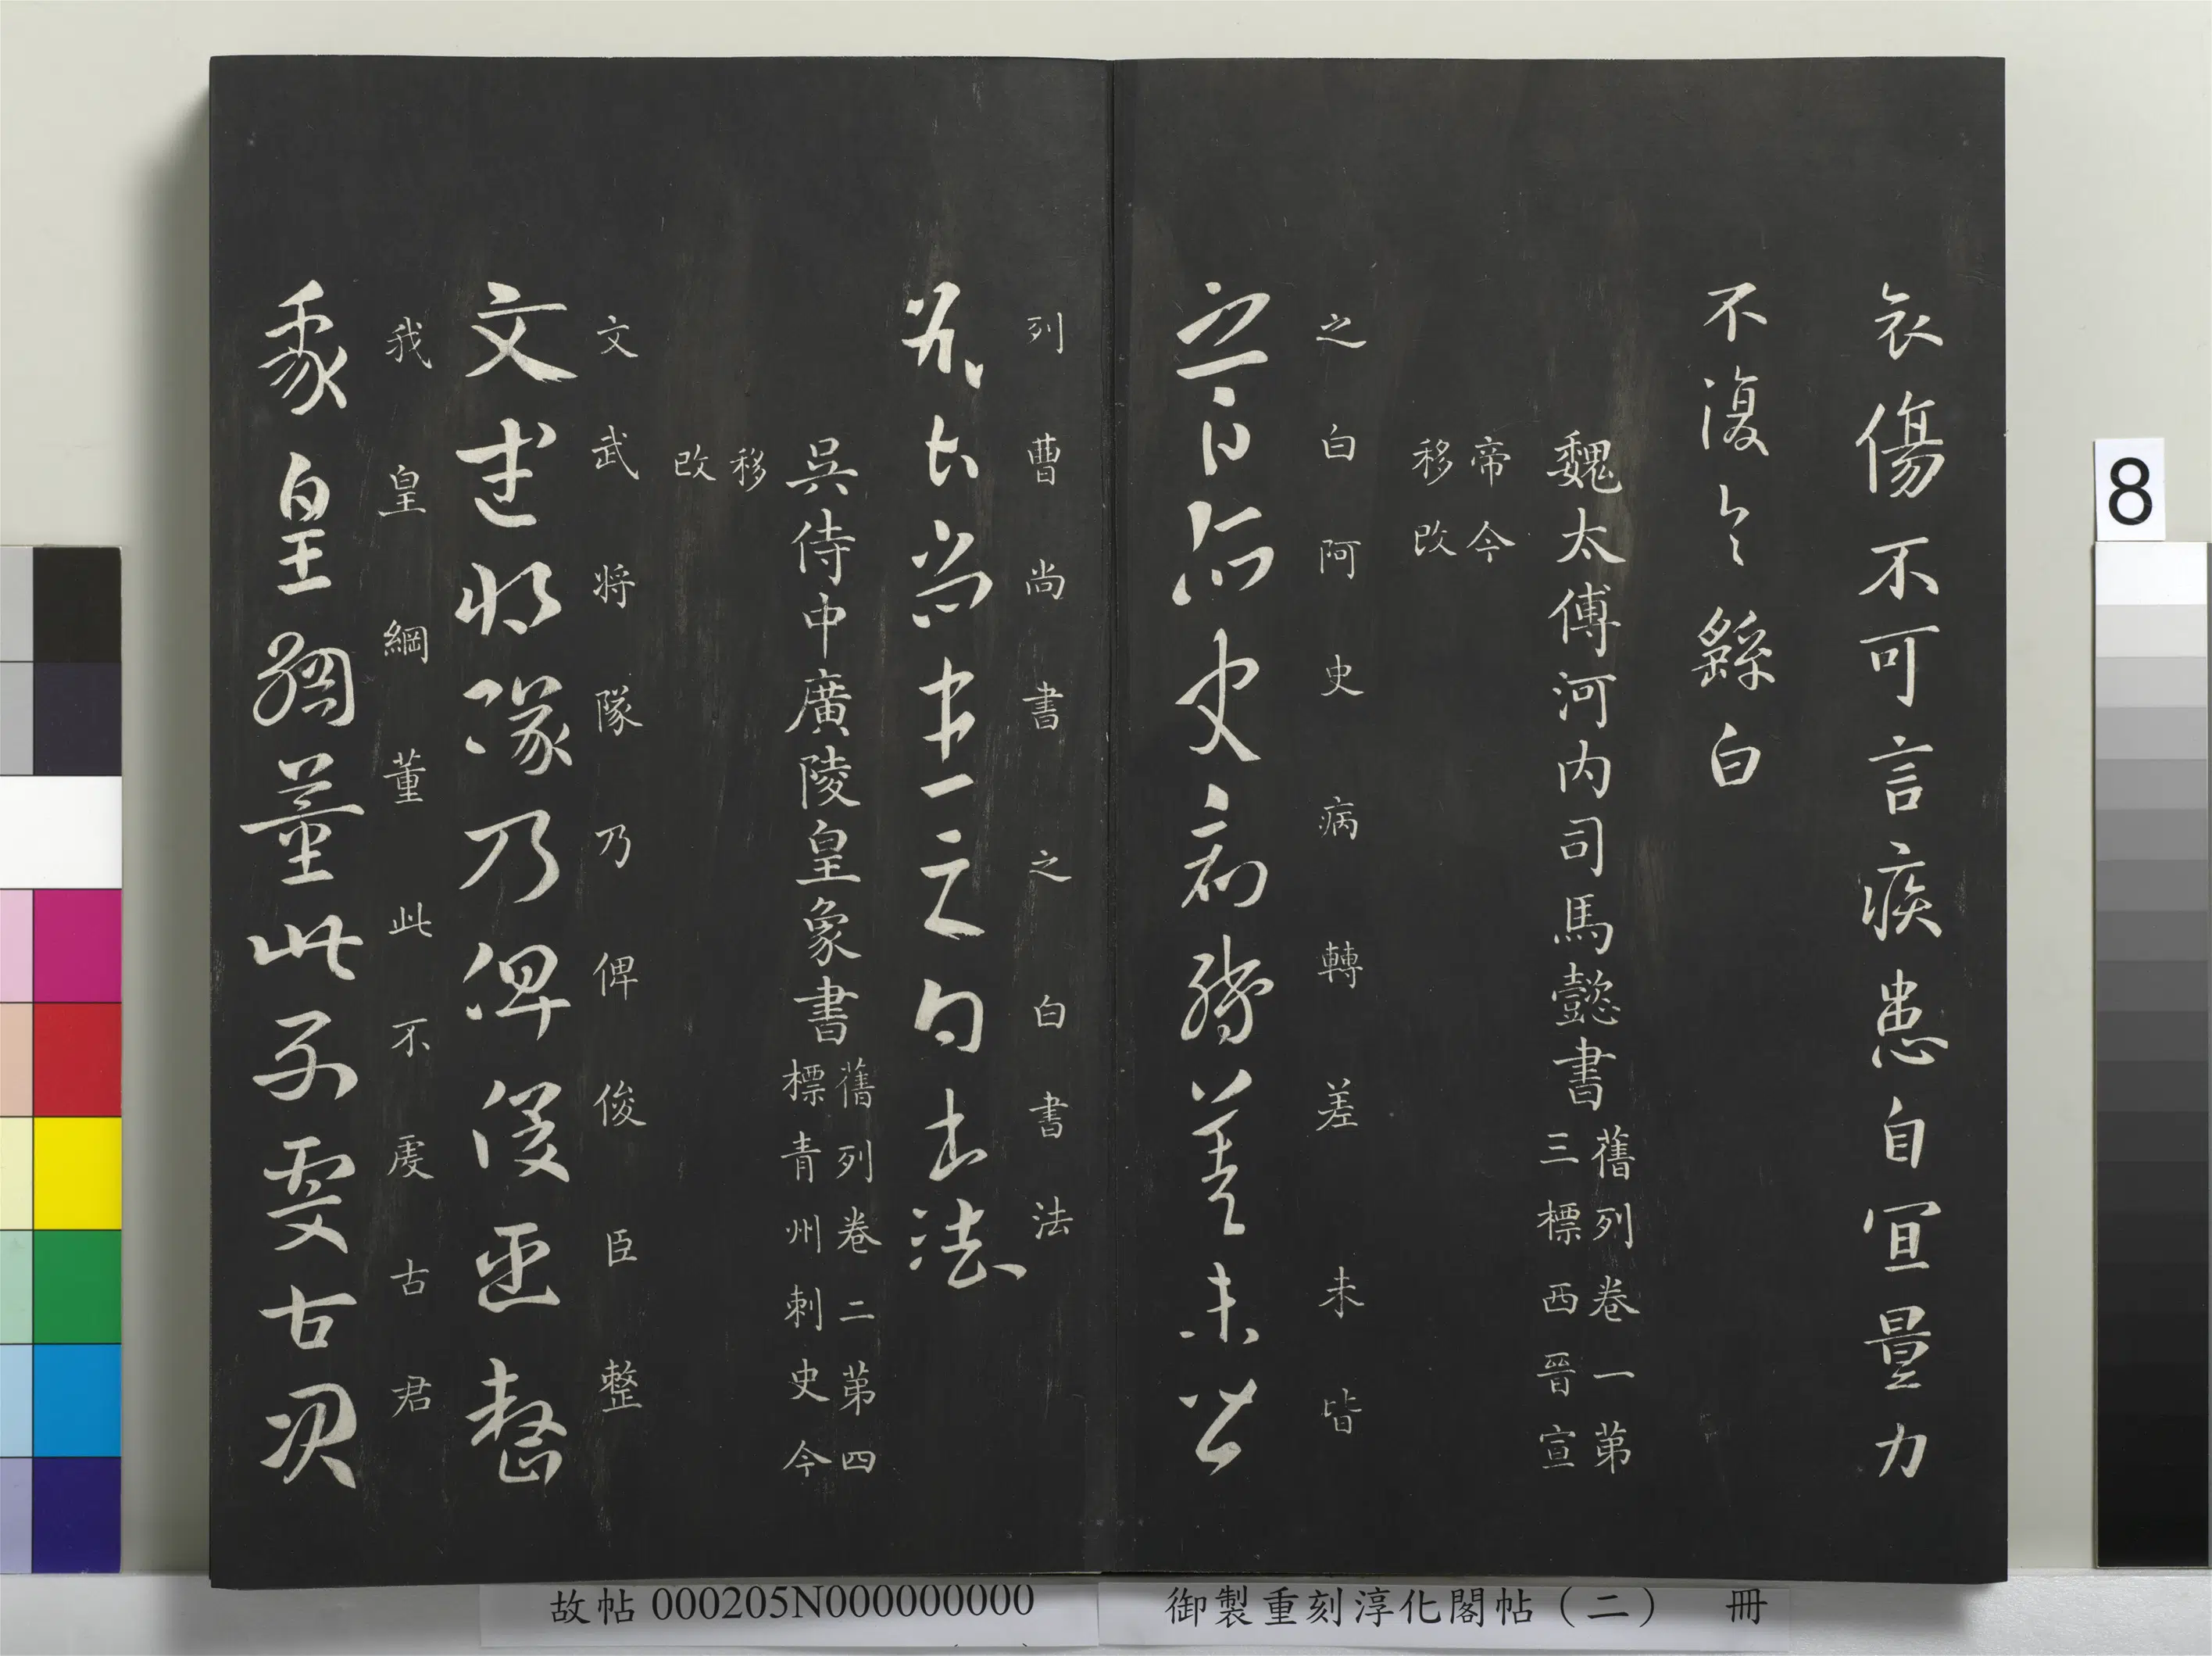 衣傷不可言疾患自宜量力
不復繇白
魏太傅河内司馬懿書
舊列卷一第
三標西晉宣
帝今
移改
之白阿史病轉差未皆
之白阿史病轉差未皆
列曹尚書之白書法
列曹尚書之白書法
吳侍中廣陵皇象書
舊列卷二第四
標青州刺史今
移
改
文武将隊乃俾俊臣整
文武将隊乃俾俊臣整
我皇綱董此不虔古君
我皇綱董此不虔古君
8
御製重刻淳化閣帖（二）　冊
故帖 000205N000000000